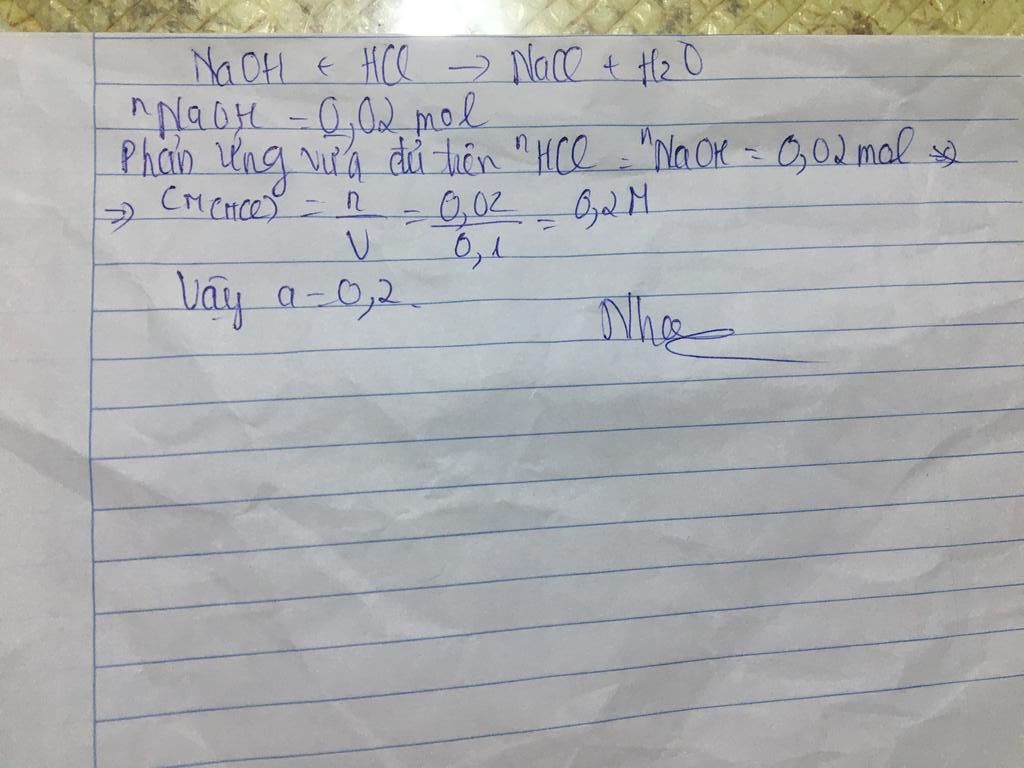 NaOH + HCl → NaCl + H2O
nNaOH = 0,02 mol
Phản ứng vừa đủ tiên nHCl = nNaOH = 0,02 mol ⇒
⇒ CM(HCl) = n/V = 0,02/0,1 = 0,2M
Vậy a = 0,2.
Nha